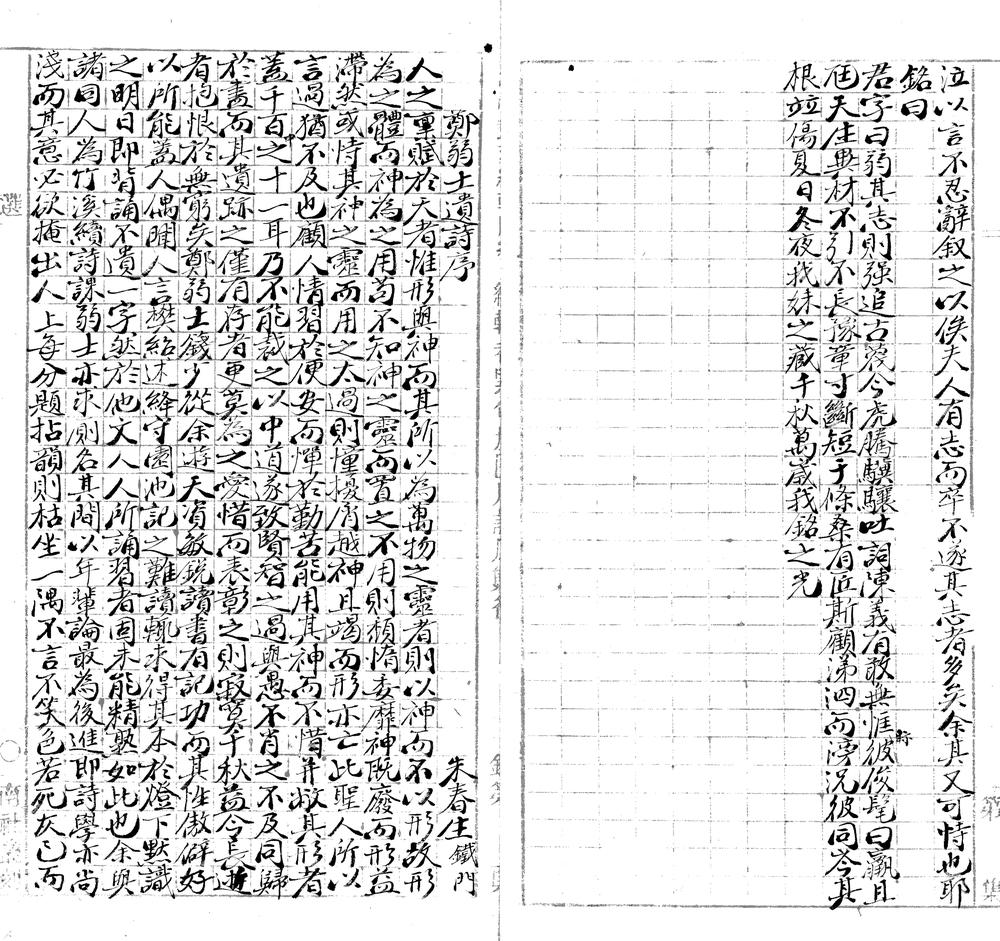 泣以言不忍辭叙之以俟夫人有志而卒不遂其志者多矣余其又可恃也耶
銘曰
君字曰弱其志則强追古蔑今虎騰驤驤吐詞陳義有敢無恇彼俊髦曰羸且
尫天生與材不引不長豫章寸斷短于條桑有匠斯顧涕泗而滂況彼同岑其
根竝傷夏日冬夜我妹之藏千秋萬歲我銘之光
鄭弱士遺詩序
朱春生鐵門
人之稟賦於天者惟形與神而其所以為萬物之靈者則以神而不以形故形
為之體而神為之用苟不知神之靈而置之不用則頹惰委靡神既廢而形益
滯然或恃其神之靈而用之太過則憧擾屑越神且竭而形亦亡此聖人所以
言過猶不及也顧人情習於便安而憚於勤苦能用其神而不惜并敝其形者
蓋千百中之十一耳乃不能裁之以中道遂致賢智之過與愚不肖之不及同歸
於盡而其遺跡之僅有存者更莫為之愛惜而表彰之則寂寞千秋益令長逝
者抱恨於無窮矣鄭弱士錢少從余遊天資敏銳讀書有記功而其性傲僻好
以所能蓋人偶聞人言樊紹述絳守園池記之難讀輒求得其本於燈下默識
之明日即背誦不遺一字然於他文人人所誦習者固未能精熟如此也余與
諸同人為竹溪續詩課弱士亦求則名其間以年輩論最為後進即詩學亦尚
淺而其意必欲掩出人上每分題拈韻則枯坐一隅不言不笑色若死灰已而